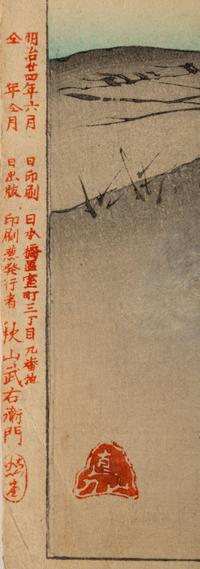 明治廿四年六月　日印刷　日本橋區室町三丁目九番地
仝　年仝月　日出版　印刷兼發行者　秋山武右衛門